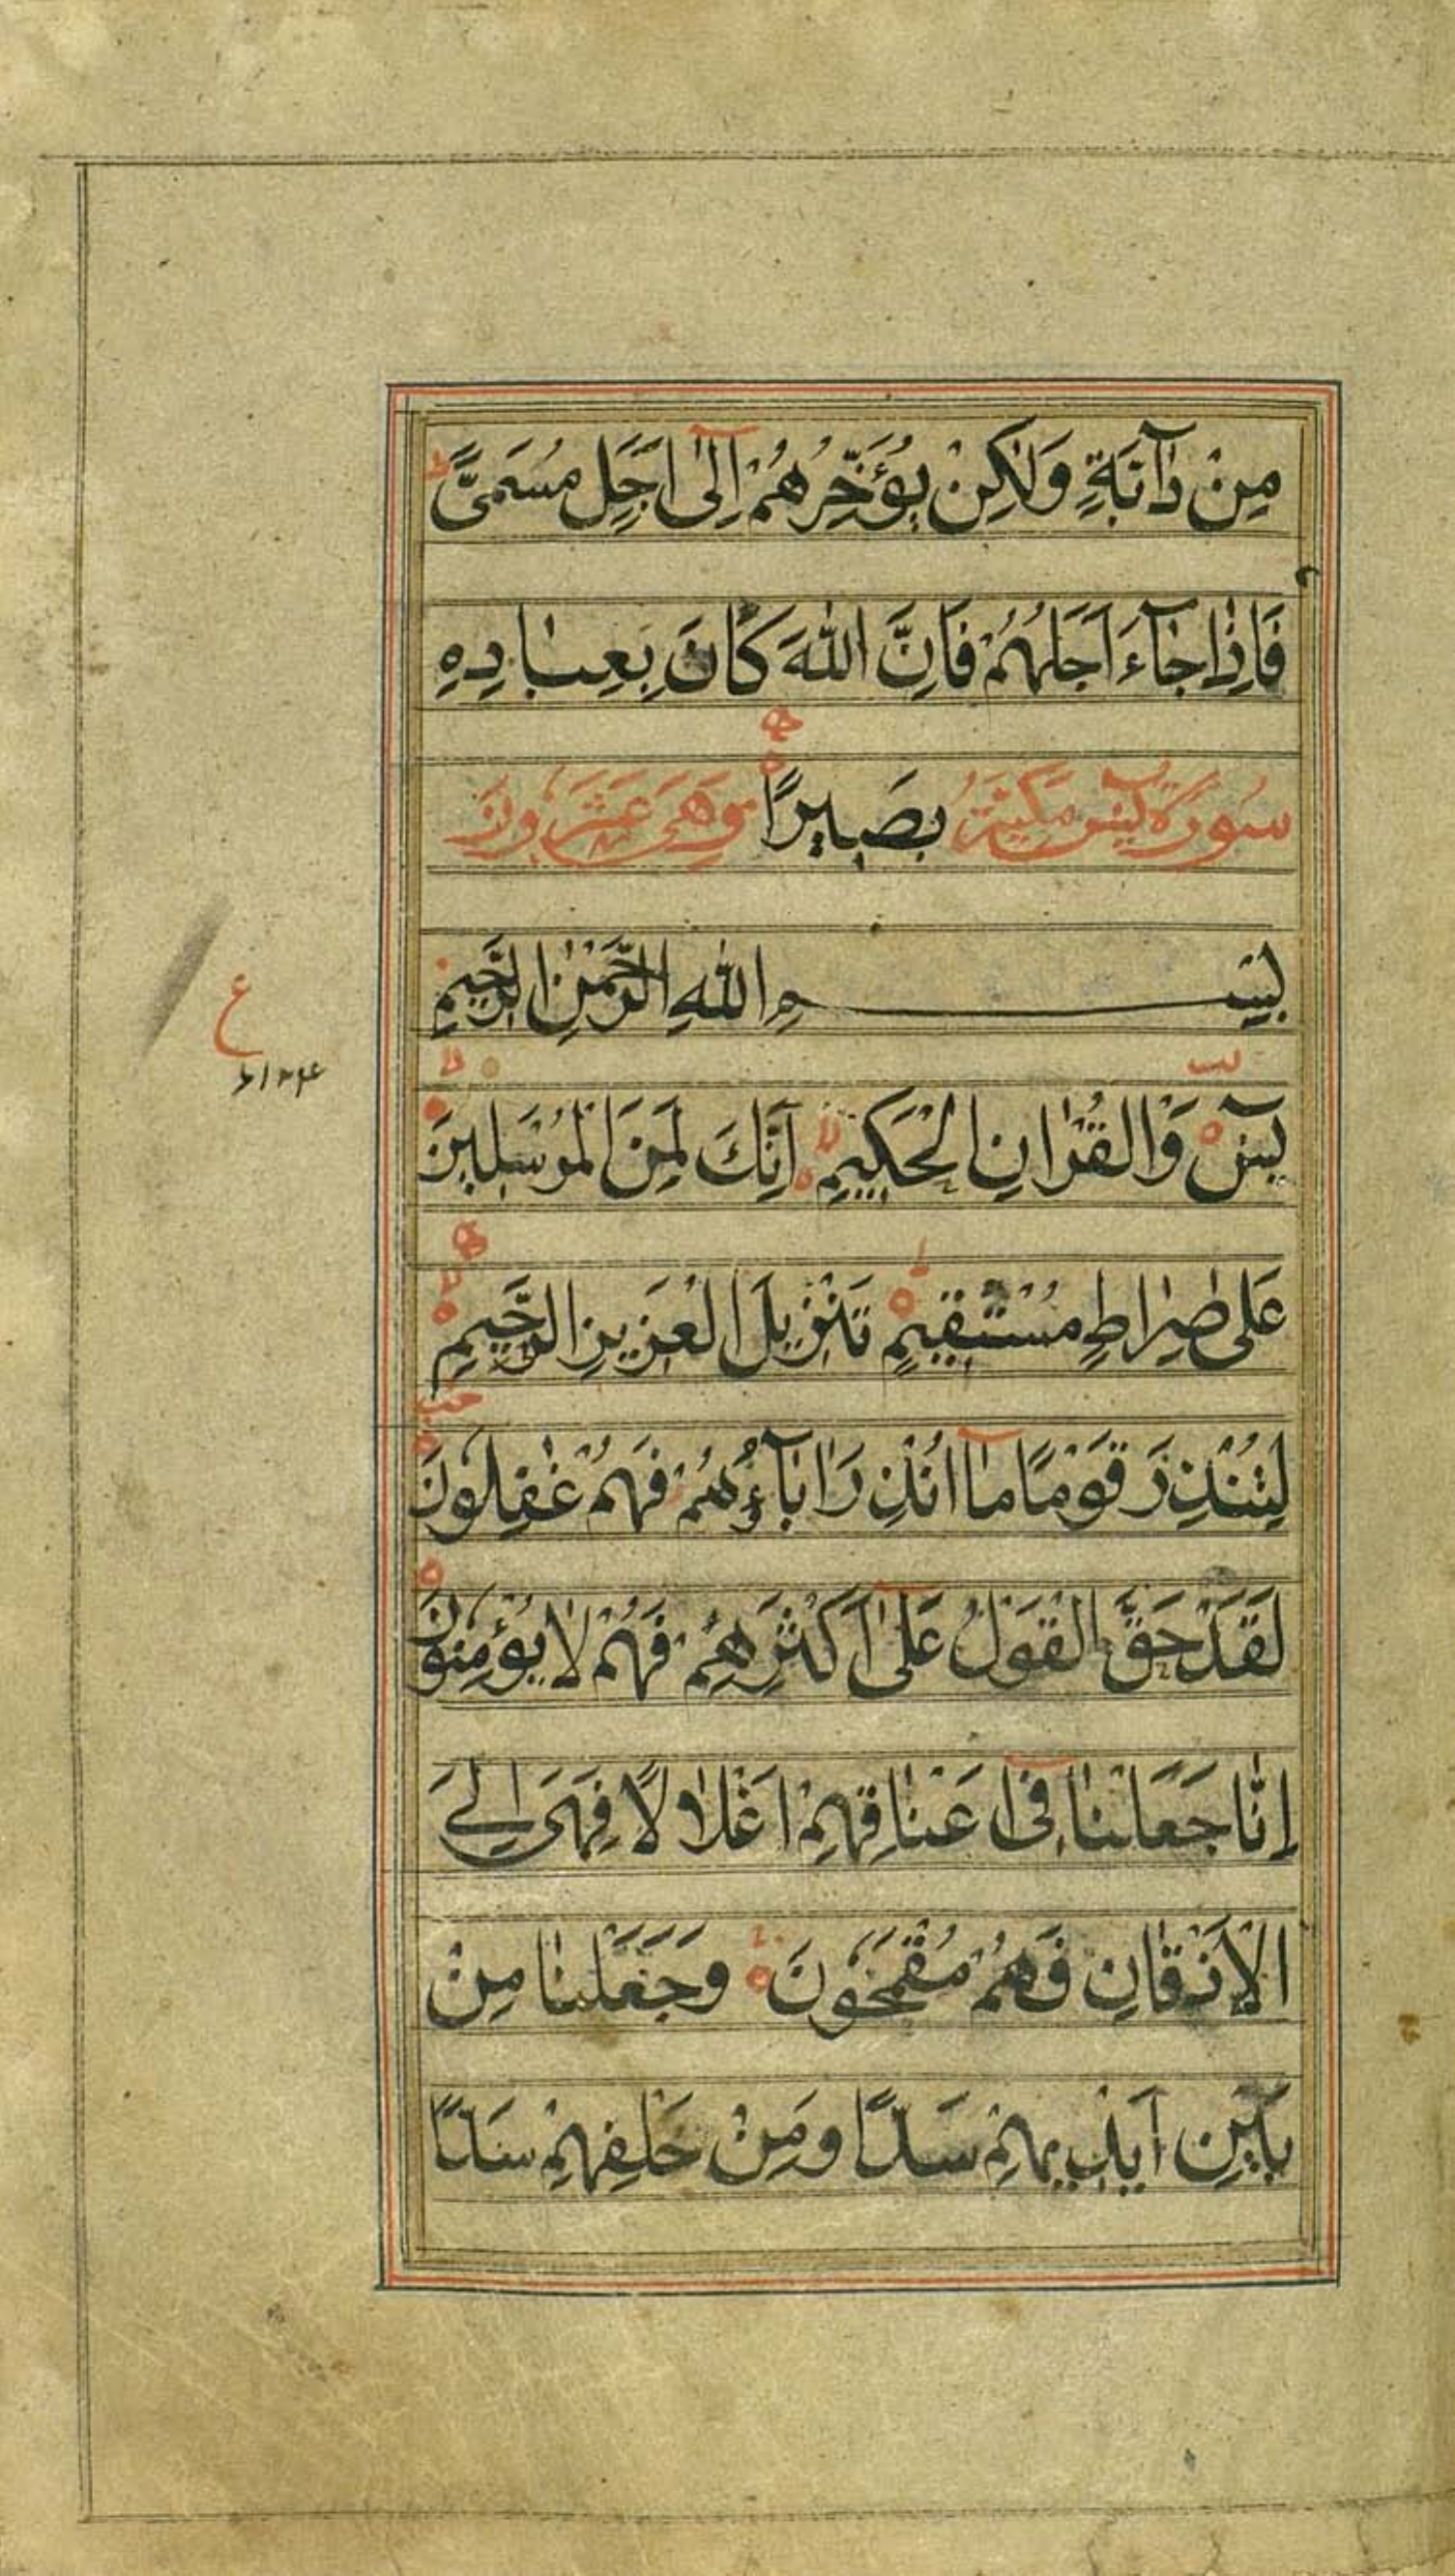 مِنْ دَآبَّةٍ وَلٰكِنْ يُؤَخِّرُهُمْ اِلٰٓى اَجَلٍ مُسَمًّى ط
فَاِذَا جَآءَ اَجَلُهُمْ فَاِنَّ اللّٰهَ كَانَ بِعِبَادِهٖ
سُورَةُ يٰسٓ مَكِّيَّةٌ بَصِيرًا وَهِيَ عَشَرَ وِنَ
بِسْمِ اللّٰهِ الرَّحْمٰنِ الرَّحِيمِ
ع
يٰسٓ وَالْقُرْاٰنِ الْحَكِيمِ لا اِنَّكَ لَمِنَ الْمُرْسَلِينَ لا
عَلٰى صِرَاطٍ مُسْتَقِيمٍ ط تَنْزِيلَ الْعَزِيزِ الرَّحِيمِ لا
لِتُنْذِرَ قَوْمًا مَآ اُنْذِرَ اٰبَآؤُهُمْ فَهُمْ غٰفِلُونَ
لَقَدْ حَقَّ الْقَوْلُ عَلٰٓى اَكْثَرِهِمْ فَهُمْ لَا يُؤْمِنُونَ
اِنَّا جَعَلْنَا فِىٓ اَعْنَاقِهِمْ اَغْلَالًا فَهِىَ اِلَى
الْاَذْقَانِ فَهُمْ مُقْمَحُونَ وَجَعَلْنَا مِنْ
بَيْنِ اَيْدِيهِمْ سَدًّا وَمِنْ خَلْفِهِمْ سَدًّا